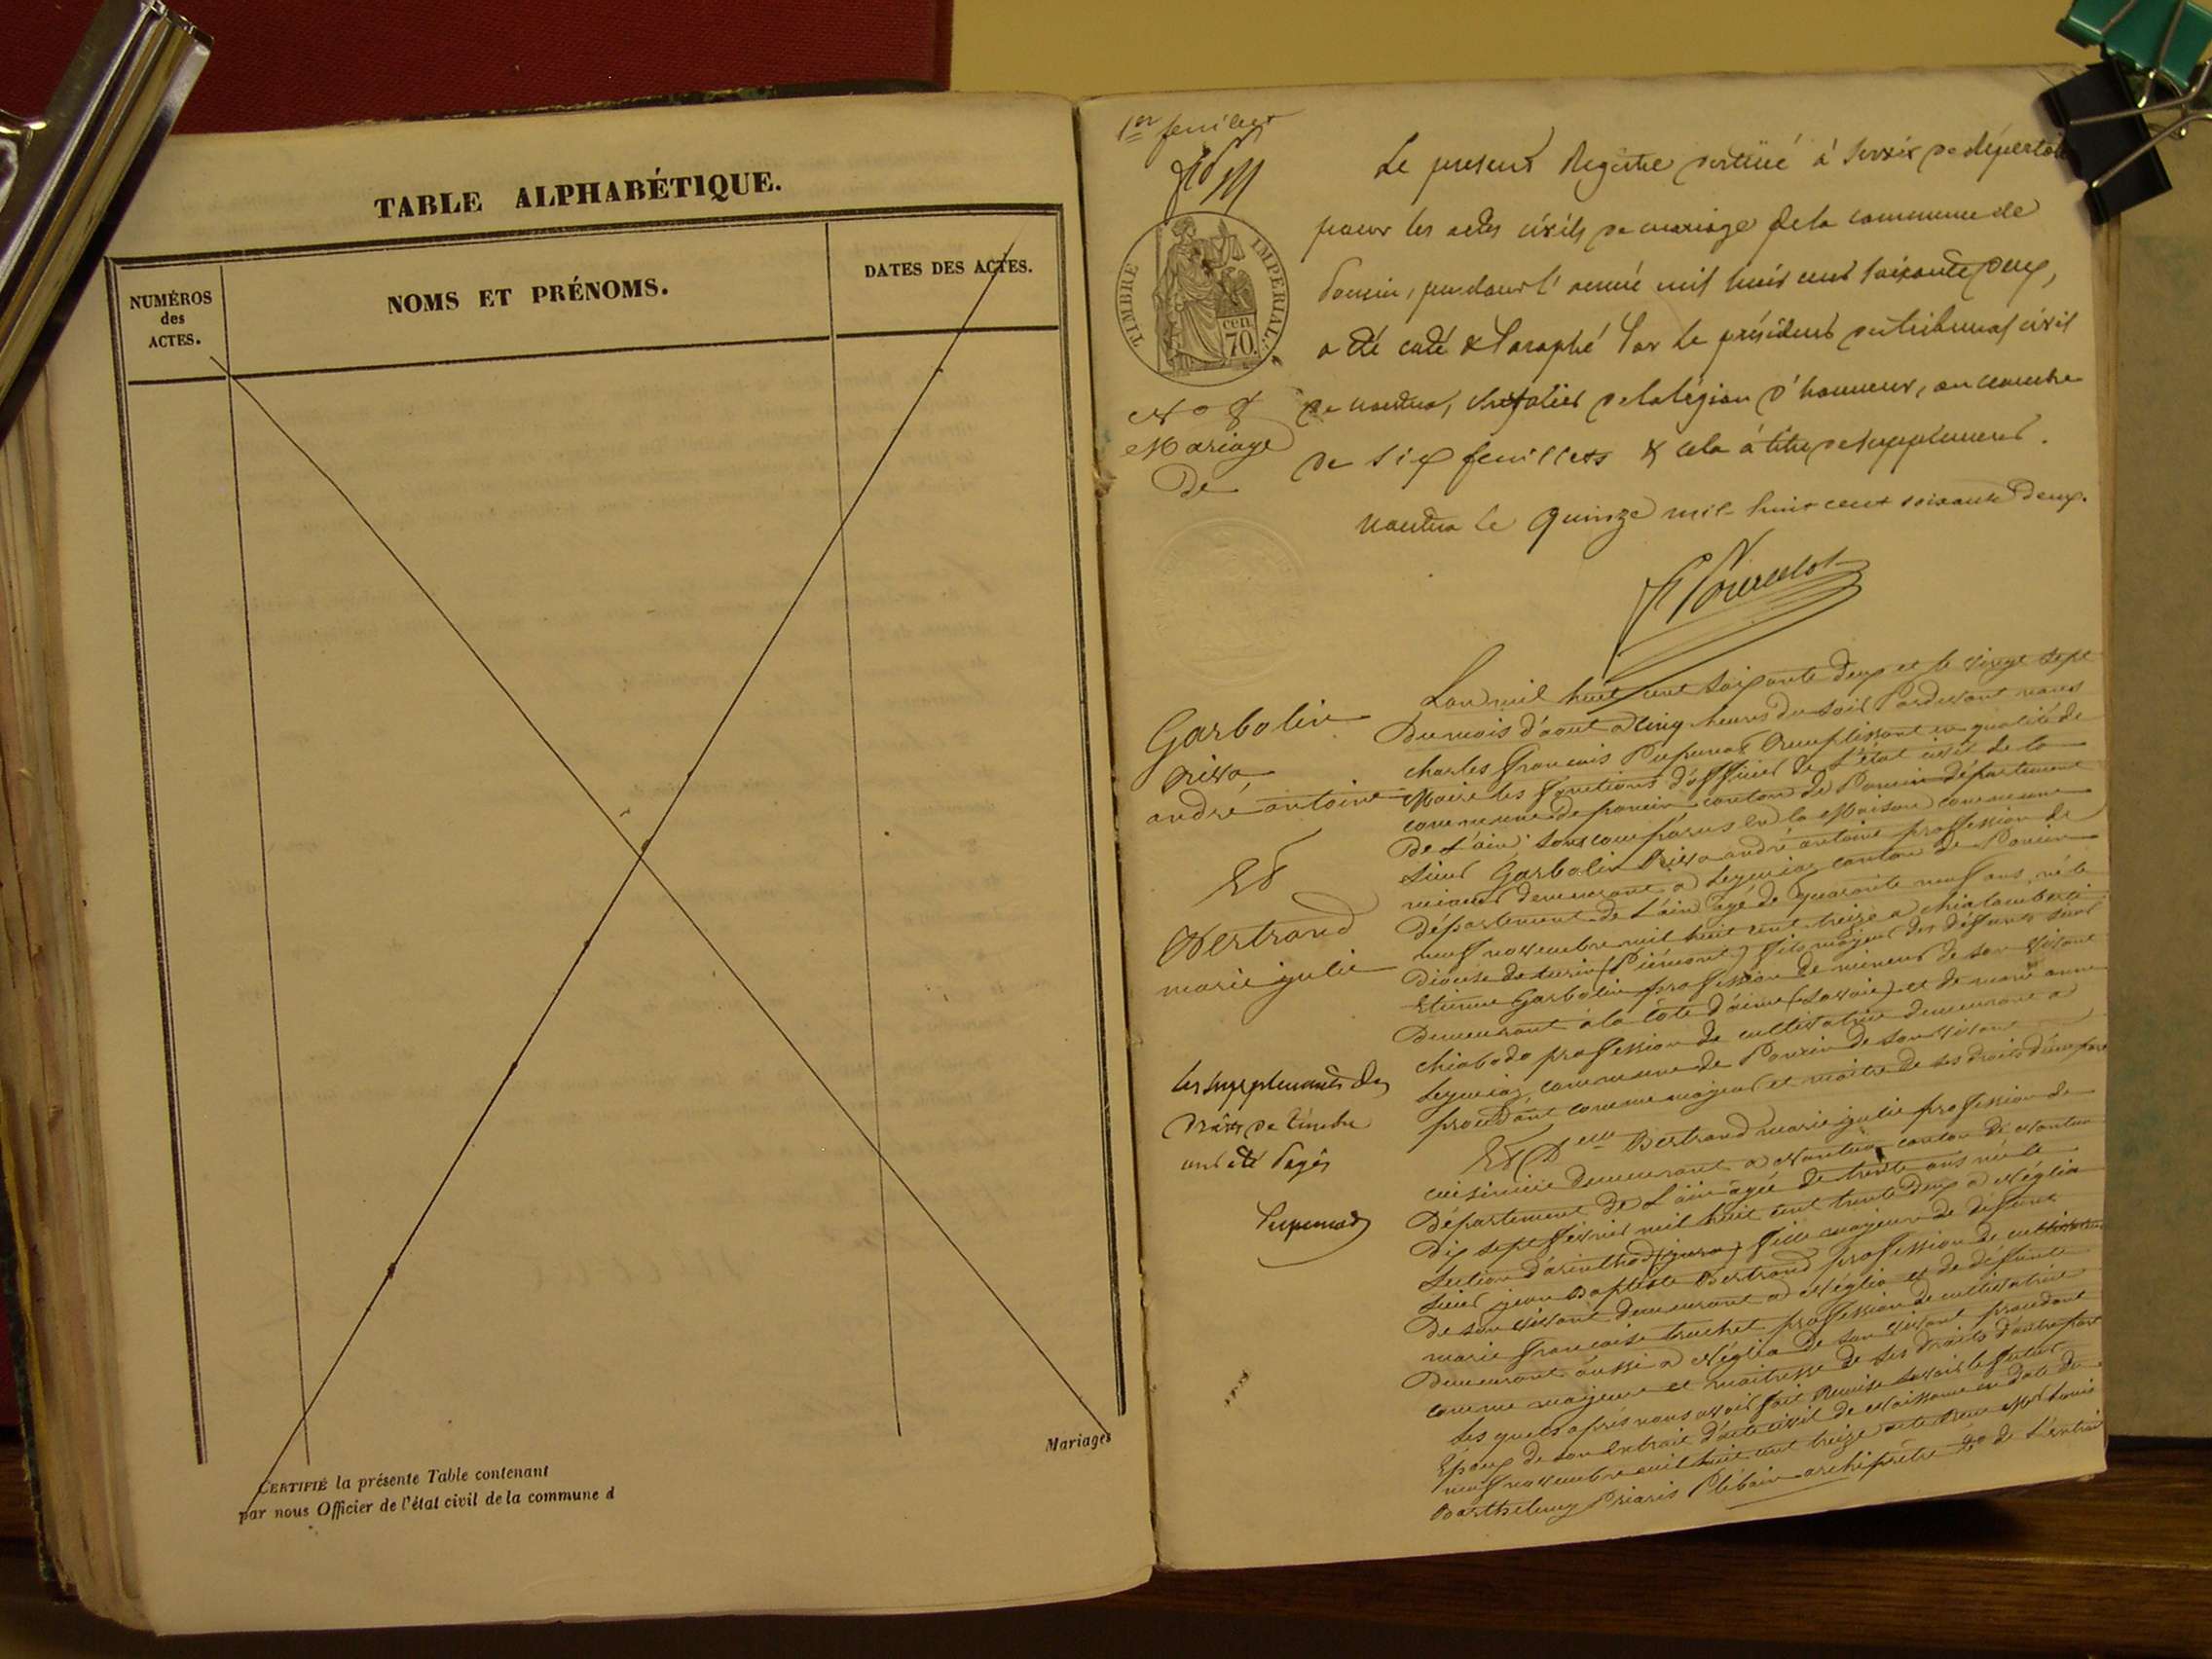 TABLE ALPHABÉTIQUE.
NUMÉROS
des
ACTES.
NOMS ET PRÉNOMS.
DATES DES ACTES.
Mariages
CERTIFIÉ la présente Table contenant
par nous Officier de l'état civil de la commune d
1er feuillet
TIMBRE IMPÉRIAL.
cen.
70.
Le present Registre destiné à servir de
pour les actes civils de mariage de la commune de
poncin, pendant l'année mil huit cent soixante deux,
a été coté & paraphé par le président du tribunal civil
de nantua, chevalier de la légion d'honneur, au nombre
de six feuillets & cela à titre de supplement.
nantua le quinze mil huit cent soixante deux.
No 8
Mariage
De
Garbolin
Rivo
andré antoine
Et
Bertrand
marie julie
les supplements des
Droits de timbre
ont été payés
L'an mil huit cent soixante deux et le vingt sept
Du mois d'aout a cinq heures du soir Pardevant nous
charles francois remplissant en qualité de
Maire les fonctions d'officier de l'état civil de la
commune de poncin canton de Poncin département
De L'ain sont comparus en la Maison commune
sieur Garbolin Rivo andré antoine proffession de
mineur demeurant a Leymiaz canton de Poncin
Département de L'ain agé de quarante neuf ans, né le
neuf novembre mil huit cent treize a chialamberto
Diocèse de turin (Piémont) fils majeur des défunts sieur
Etienne Garbolin proffession de mineur de son vivant
Demeurant à la côte d'aime (Savoie) et de marie anne
chiabodo proffession de cultivatrice demeurant a
Leymiaz commune de Poncin de son vivant
procédant comme majeur et maitre de ses droits d'une part
Et Delle Bertrand marie julie proffession de
cuisinière demeurant a Nantua canton de Nantua
Département de L'ain agée de trente ans née le
Dix sept février mil huit cent trente deux a Néglia
Section d'arinthod (jura) fille majeure de défunt
sieur jean Baptiste Bertrand proffession de cultivateur
De son vivant demeurant a Néglia et de défunte
marie francoise truchet proffession de cultivatrice
Demeurant aussi a Néglia de son vivant procédant
comme majeure et maitresse de ses droits d'autre part
Les quels après nous avoir fait remise savoir le futur
Epoux de son extrait d'acte civil de naissance en date du
neuf novembre mil huit cent treize Louis
Barthelemy Plébain archiprêtre de L'extrait